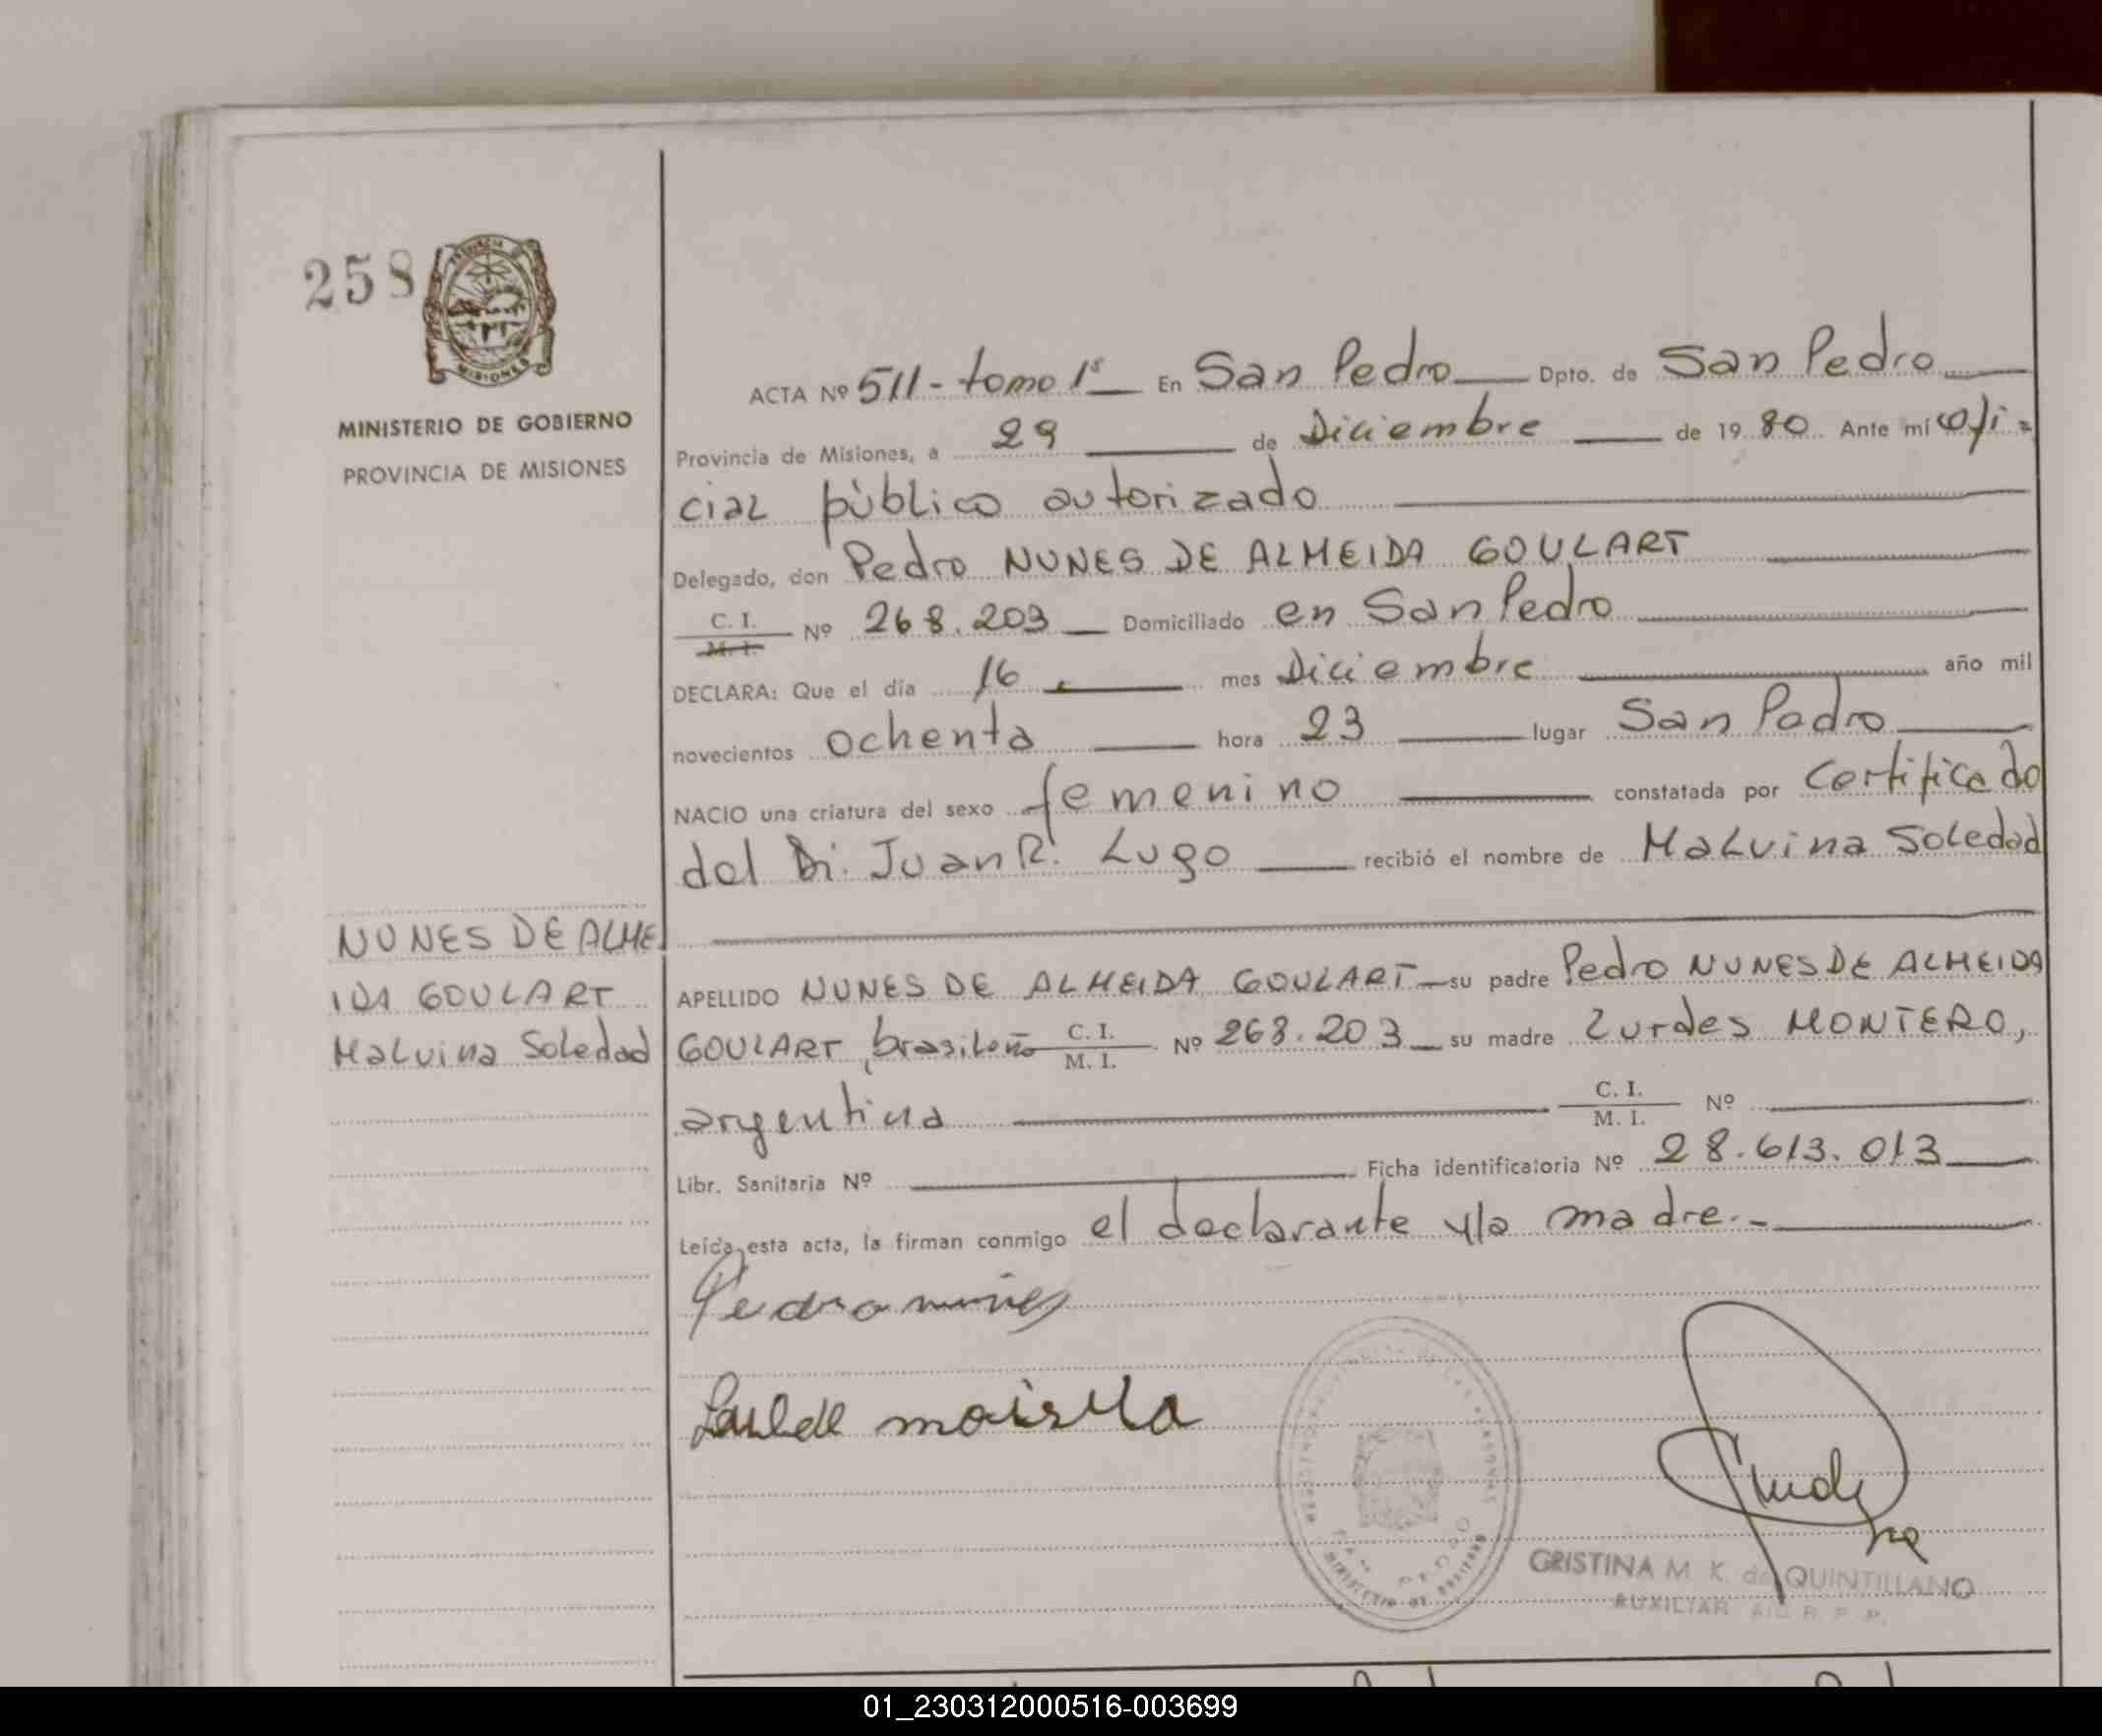 258
MINISTERIO DE GOBIERNO
PROVINCIA DE MISIONES
ACTA Nº 511 - tomo 1º En San Pedro Dpto. de San Pedro
Provincia de Misiones, a 29 de Diciembre de 1980 Ante mi ofi=
cial público autorizado
Delegado, don Pedro NUNES DE ALMEIDA GOULART
C. I.
M. I.
Nº 268.203 Domiciliado en San Pedro
DECLARA: Que el día 16 mes Diciembre año mil
novecientos ochenta hora 23 lugar San Pedro
NACIO una criatura del sexo femenino constatada por Certificado
del Dr. Juan R. Lugo recibió el nombre de Malvina Soledad
NUNES DE ALME
IDA GOULART
Malvina Soledad
APELLIDO NUNES DE ALMEIDA GOULART su padre Pedro NUNES DE ALMEIDA
GOULART, brasileño C. I. M. I. Nº 268.203 su madre Lurdes MONTERO,
argentina C. I. M. I. Nº
Libr. Sanitaria Nº Ficha identificatoria Nº 28.613.013
Leída esta acta, la firman conmigo el declarante y la madre.-
Pedro nunes
SAN PEDRO
CRISTINA M. K. de QUINTILLANO
AUXILIAR
01_230312000516-003699